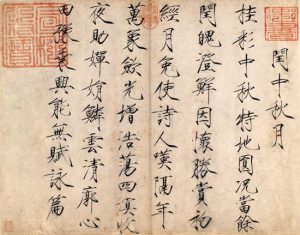 閏中秋月
桂彩中秋特地圓况當餘
閏魄澄鮮因懷勝賞初
經月免使詩人歎隔年
萬象歛光增浩蕩四溟收
夜助嬋娟鱗雲清廓心
田豫乘興能無賦詠篇